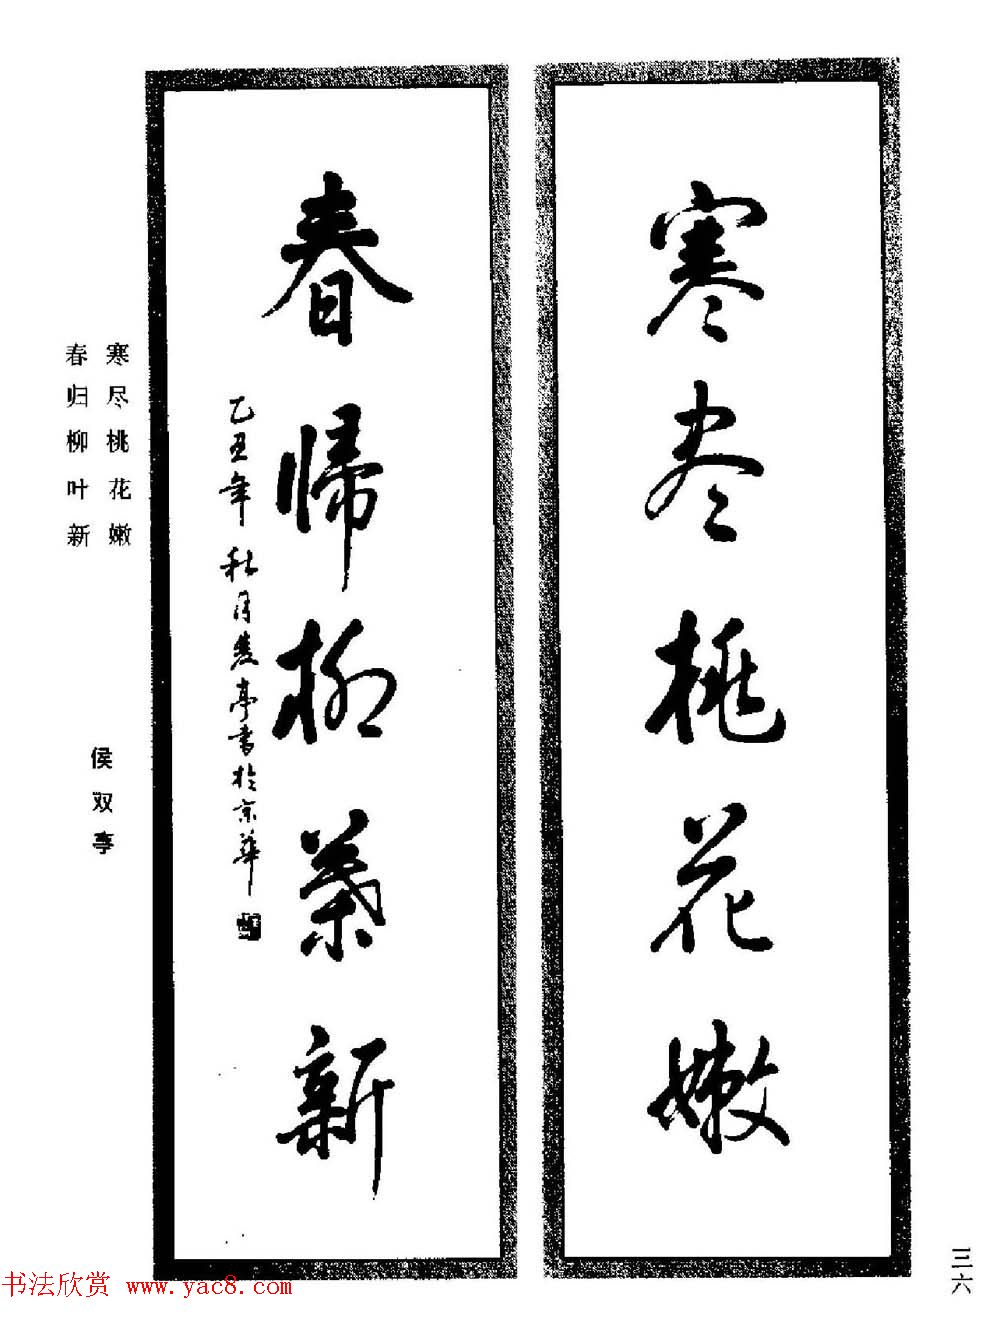 寒尽桃花嫩
春歸柳葉新
乙丑年秋月双亭書於京華
寒尽桃花嫩
春归柳叶新
侯双亭
三六
书法欣赏 www.yac8.com